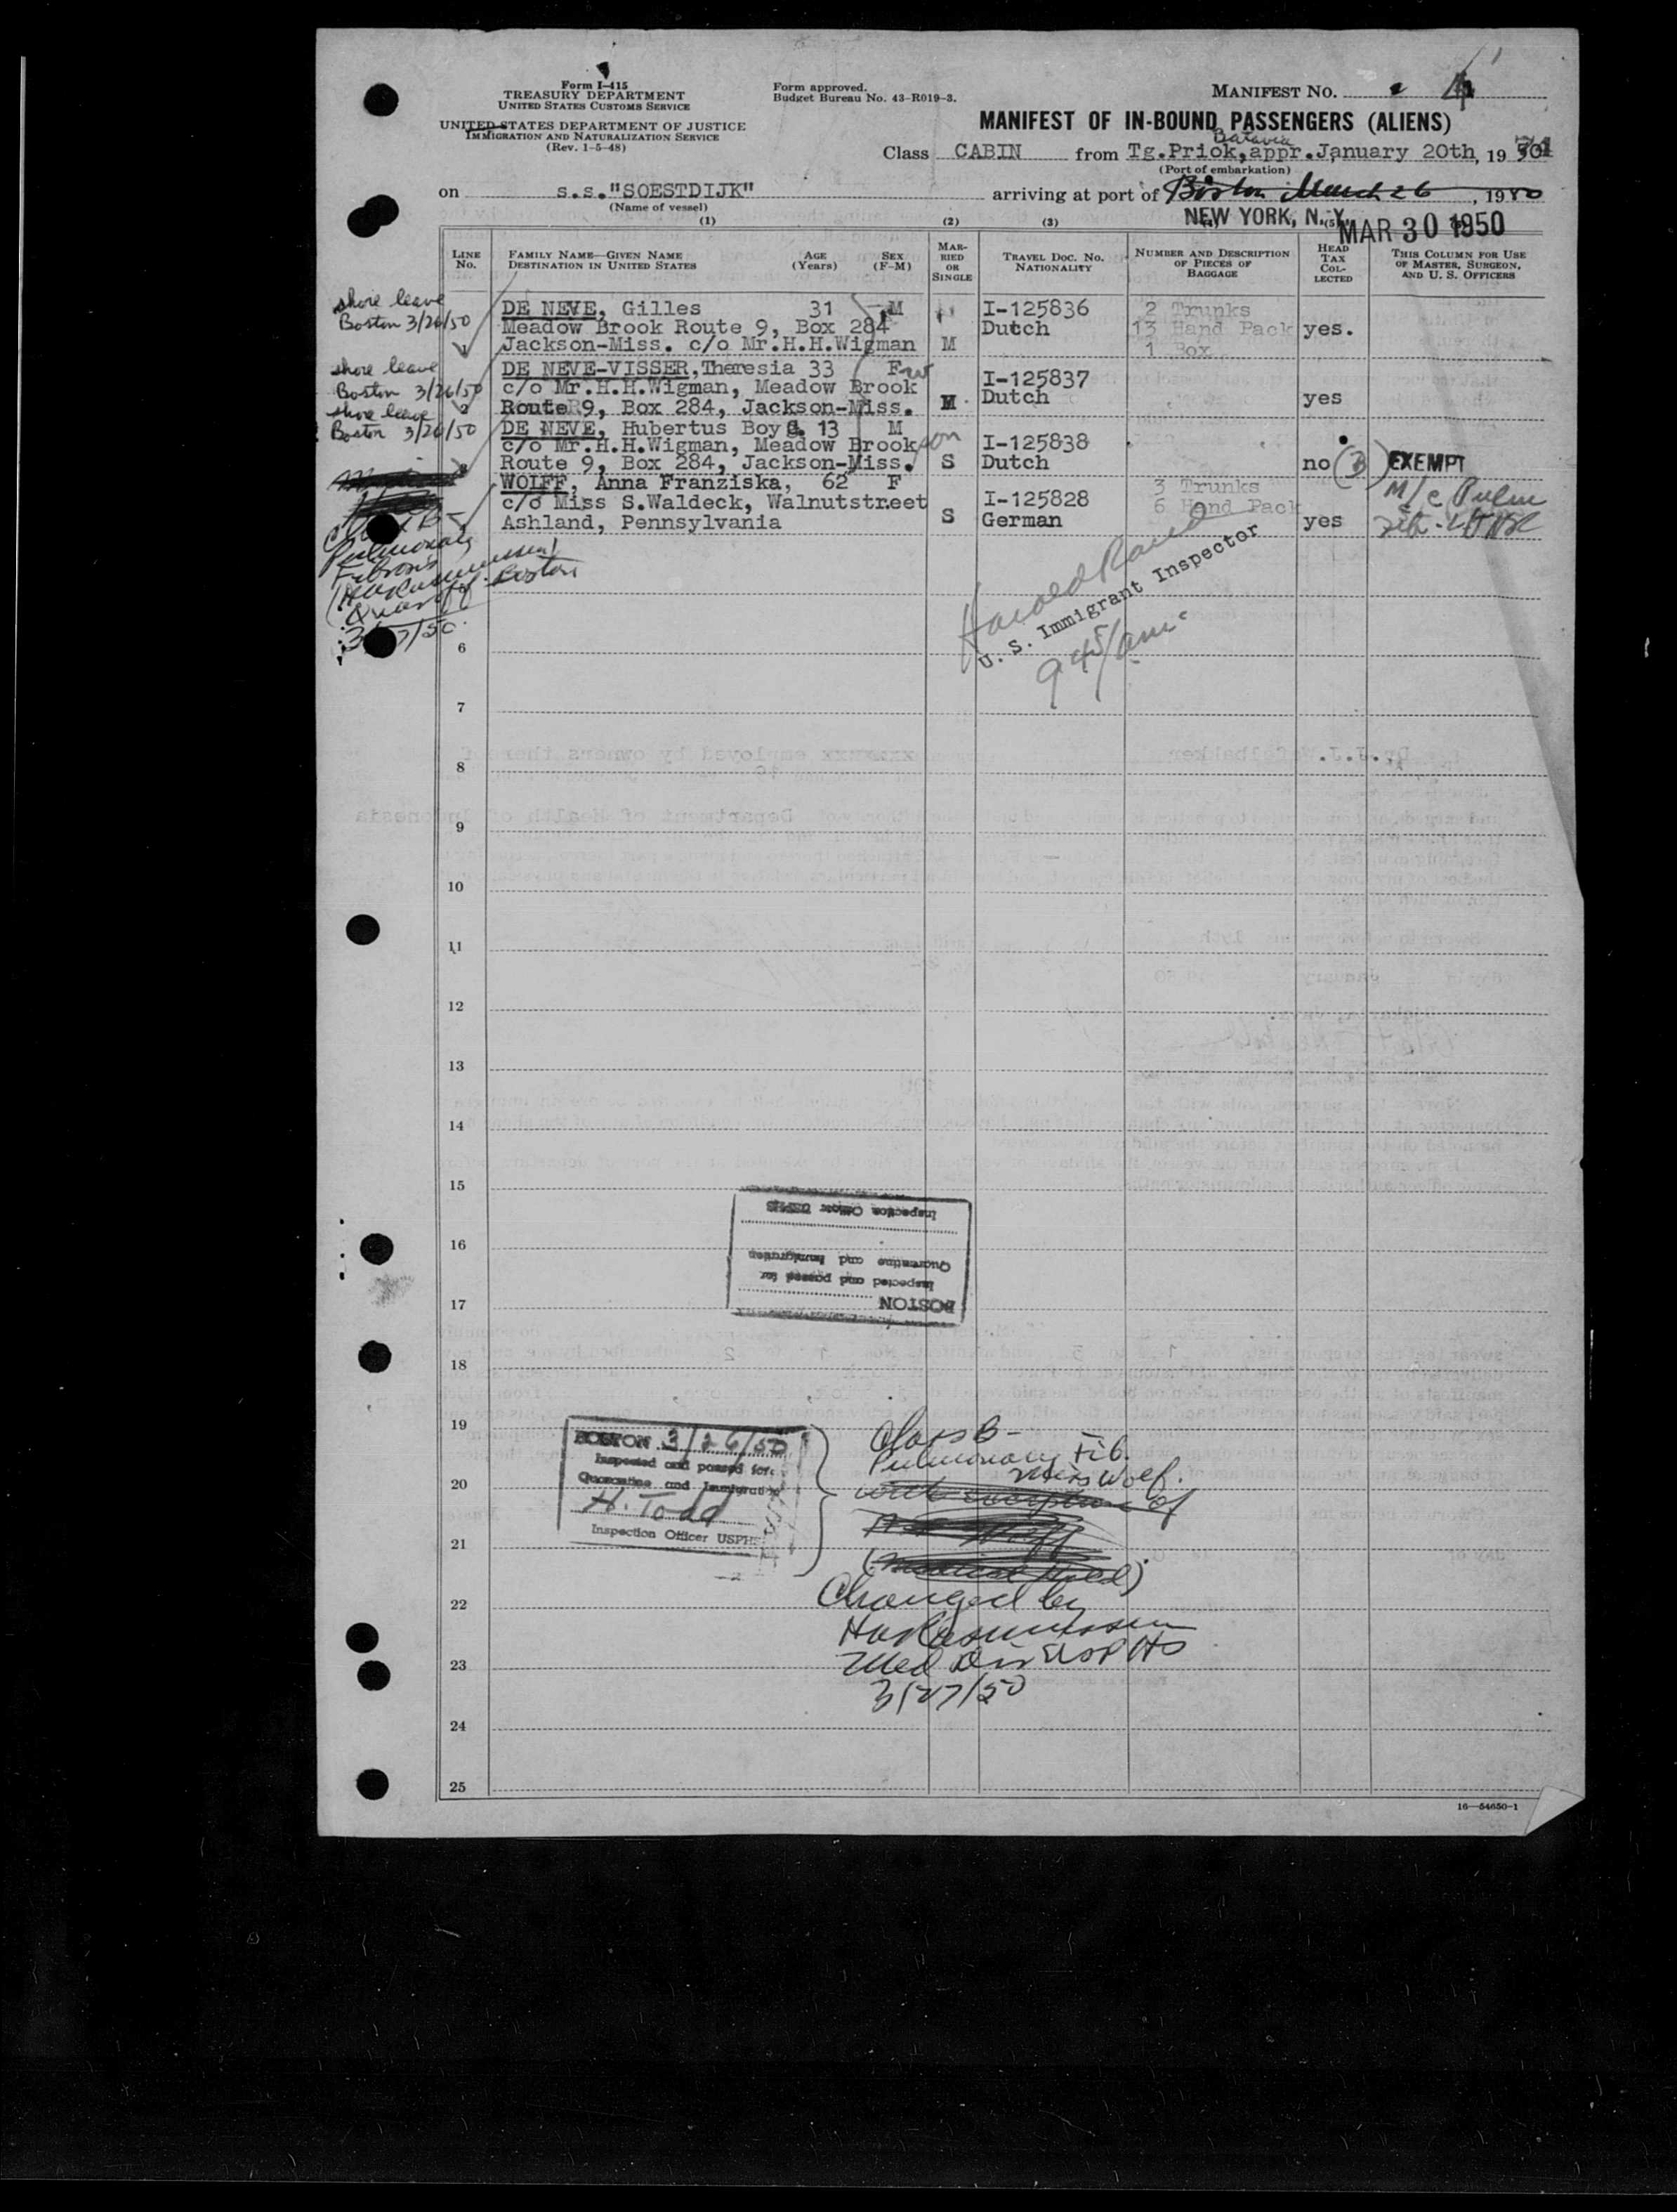 Form I-415
TREASURY DEPARTMENT
UNITED STATES CUSTOMS SERVICE
UNITED STATES DEPARTMENT OF JUSTICE
IMMIGRATION AND NATURALIZATION SERVICE
(Rev. 1-5-48)
Form approved.
Budget Bureau No. 43-R019-3.
MANIFEST NO. 4
MANIFEST OF IN-BOUND PASSENGERS (ALIENS)
Batavia
Class CABIN from Tg.Priok, appr. January 20th, 19
(Port of embarkation)
on s.s."SOESTDIJK" arriving at port of Boston March 26, 1950
(Name of vessel)
NEW YORK, N. Y. MAR 30 1950
(1) (2) (3) (5)
LINE No.
FAMILY NAME—GIVEN NAME
DESTINATION IN UNITED STATES
AGE (Years)
SEX (F-M)
MARRIED OR SINGLE
TRAVEL DOC. NO.
NATIONALITY
NUMBER AND DESCRIPTION OF PIECES OF BAGGAGE
HEAD TAX COLLECTED
THIS COLUMN FOR USE OF MASTER, SURGEON, AND U. S. OFFICERS
shore leave
Boston 3/26/50
DE NEVE, Gilles 31 M I-125836 2 Trunks
Meadow Brook Route 9, Box 284 Dutch 13 Hand Pack yes.
Jackson-Miss. c/o Mr.H.H.Wigman M 1 Box
shore leave
Boston 3/26/50
DE NEVE-VISSER, Theresia 33 F w I-125837
c/o Mr.H.H.Wigman, Meadow Brook Dutch yes
Route 9, Box 284, Jackson-Miss. M
shore leave
Boston 3/26/50
DE NEVE, Hubertus Boy G. 13 M son
c/o Mr.H.H.Wigman, Meadow Brook I-125838
Route 9, Box 284, Jackson-Miss. S Dutch no (B) EXEMPT
WOLFF, Anna Franziska, 62 F 3 Trunks
c/o Miss S.Waldeck, Walnutstreet I-125828 6 Hand Pack
Ashland, Pennsylvania S German yes
M/c Pulm
Class B-
Pulmonary
Fibrosis
Boston
3/27/50
Harold
U. S. Immigrant Inspector
9 45/am
6
7
8
9
10
11
12
13
14
15
16
17
18
19
20
21
22
23
24
25
BOSTON
Inspected and passed for
Quarantine and Immigration
Inspection Officer USPHS
BOSTON 3/26/50
Inspected and passed for
Quarantine and Immigration
H. Todd
Inspection Officer USPHS
Class B-
Pulmonary Fib.
Miss Wolf.
with exception of
(Medical Hold)
Changed by
Med Div USPHS
3/27/50
16—54650-1